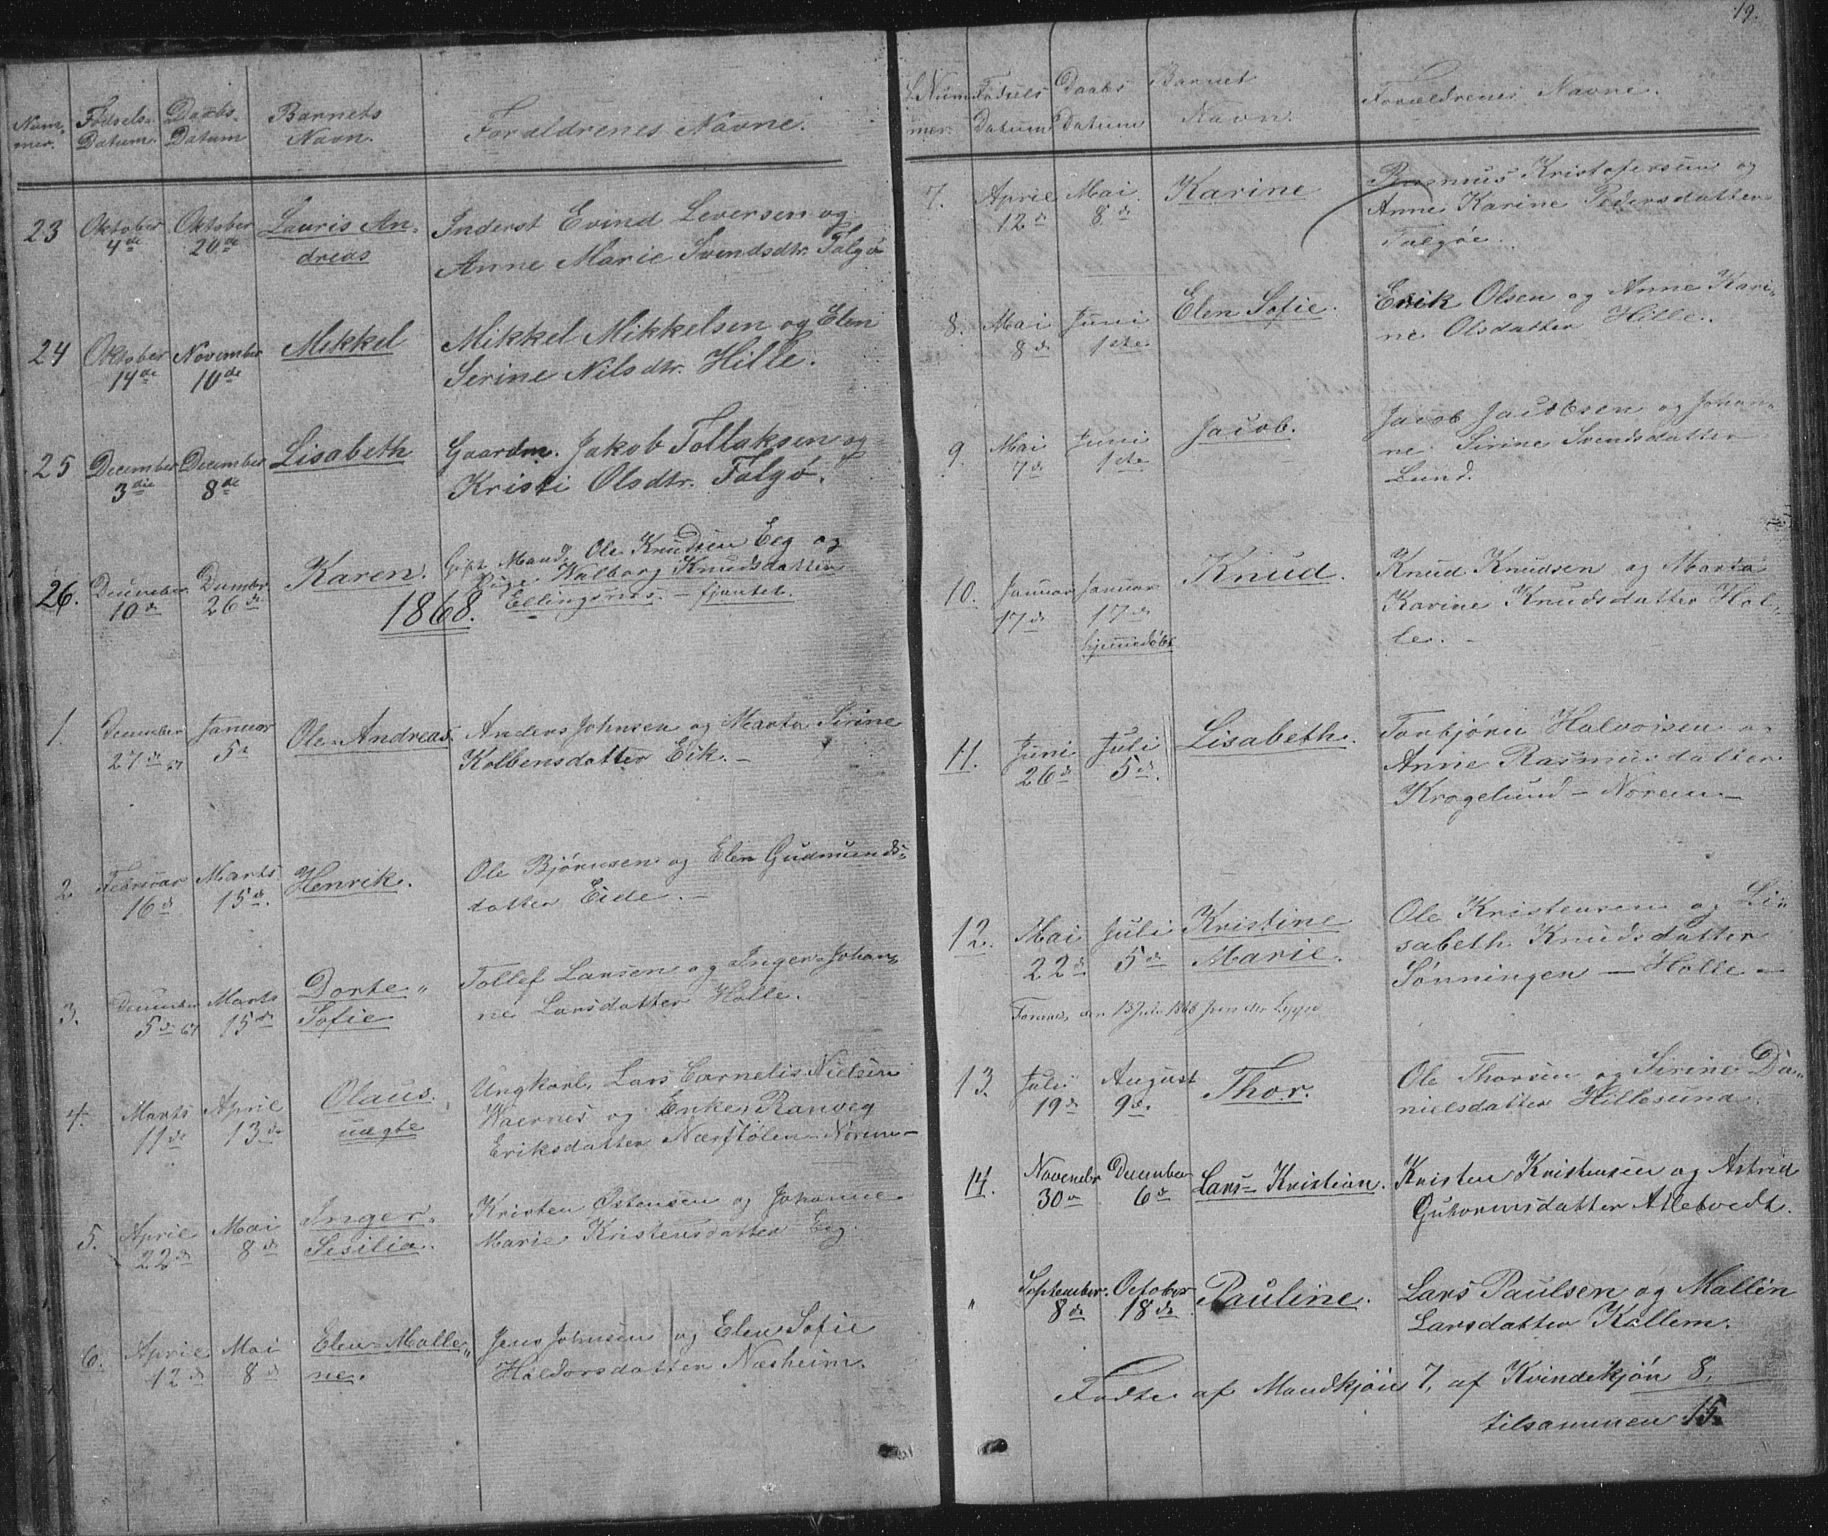 Num-
mer.
Fødsels-
Datum.
Daabs-
Datum
Barnets
Navn.
Forældrenes Navne.
23 Oktober 4de Oktober 20de Lauris An-
dreas
Inderst Evind Leversen og
Anne Marie Svendsdtr. Talgø
24 Oktober 14de November 10de Mikkel
Mikkel Mikkelsen og Elen
Serine Nilsdtr. Hille.
25 December 3die December 8de Lisabeth
Gaardm. Jakob Tollaksen og
Kristi Olsdtr. Talgø.
26. December 10d December 26d Karen.
Gift Mand, Ole Knudsen Eeg og
Pige Walborg Knudsdatter
Ellingsnes.
1868.
1. December 27d 67 Januar 5d Ole Andreas.
Anders Johnsen og Marta Sirine
Kolbensdatter Eik. -
2 Februar 16d Marts 15d. Henrik.
Ole Bjørnsen og Elen Gudmunds-
datter Eide. -
3. December 5d 67 Marts 15d Dorte-
Sofie
Tollef Larsen og Inger Johan-
ne Larsdatter Halle.
4. Marts 11d April 13d Olaus.
uægte
Ungkarl, Lars Cornelis Nielsen
Waernes og Enke, Ranveg
Eriksdatter Nærstølen - Norem -
5. April 22d Mai 8d Inger-
Sesilia.
Kristen Østensen og Johanne
Marie Kristensdatter Eeg.
6. April 12d Mai 8d Elen Malle-
ne.
Jens Johnsen og Elen Sofie
Haldorsdatter Næsheim.
19.
Num-
mer.
Fødsels
Datum
Daabs
datum
Barnet
Navn.
Forældrenes Navne.
7. April 12d Mai 8d Karine
Rasmus Kristofersen og
Anne Karine Pedersdatter
Talgøe.
8. Mai 8d Juni 1ste Elen Sofie.
Erik Olsen og Anne Kari-
ne Olsdatter Hille.
9. Mai 7d Juni 1ste Jacob.
Jacob Jacobsen og Johan-
ne Sirine Svendsdatter
Lund.
10. Januar 17d Januar 17d hjemmedøbt Knud.
Knud Knudsen og Marta
Karine Knudsdatter Hal-
le. -
11. Juni 26d Juli 5d. Lisabeth.
Torbjørn Halvorsen og
Anne Rasmusdatter
Krogelund - Norem -
12. Mai 22d Juli 5d Kristine
Marie.
Ole Kristensen og Li-
sabeth Knudsdatter
Sønningen - Halle -
13. Juli 19d August 9d. Thor.
Ole Thorsen og Sirine Da-
nielsdatter Hillesund.
14. Novembr 30d December 6d Lars-Kristian.
Kristen Kristensen og Astrid
Gutormsdatter Atletvedt.
" September 8d October 18d Pauline.
Lars Paulsen og Mallin
Larsdatter Kallem.
Fødte af Mandkjøn 7, af Kvindekjøn 8,
tilsammen 15.